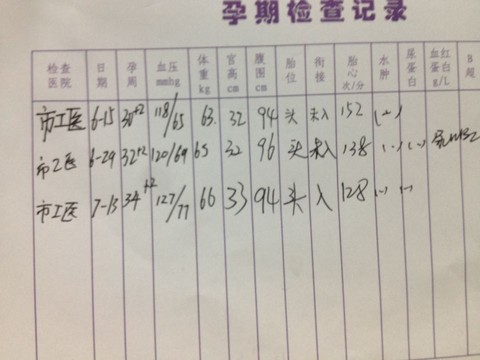 孕期检查记录
检查医院 日期 孕周 血压mmhg 体重kg 宫高cm 腹围cm 胎位 衔接 胎心次/分 水肿 尿蛋白 血红蛋白g/L B超
市工医 6-15 30+2 118/65 63 32 94 头 未入 152 (-)
市工医 6-29 32+2 120/69 65 32 96 头 未入 138 (-) (-)
市工医 7-13 34+2 127/77 66 33 94 头 入 128 (-) (-)